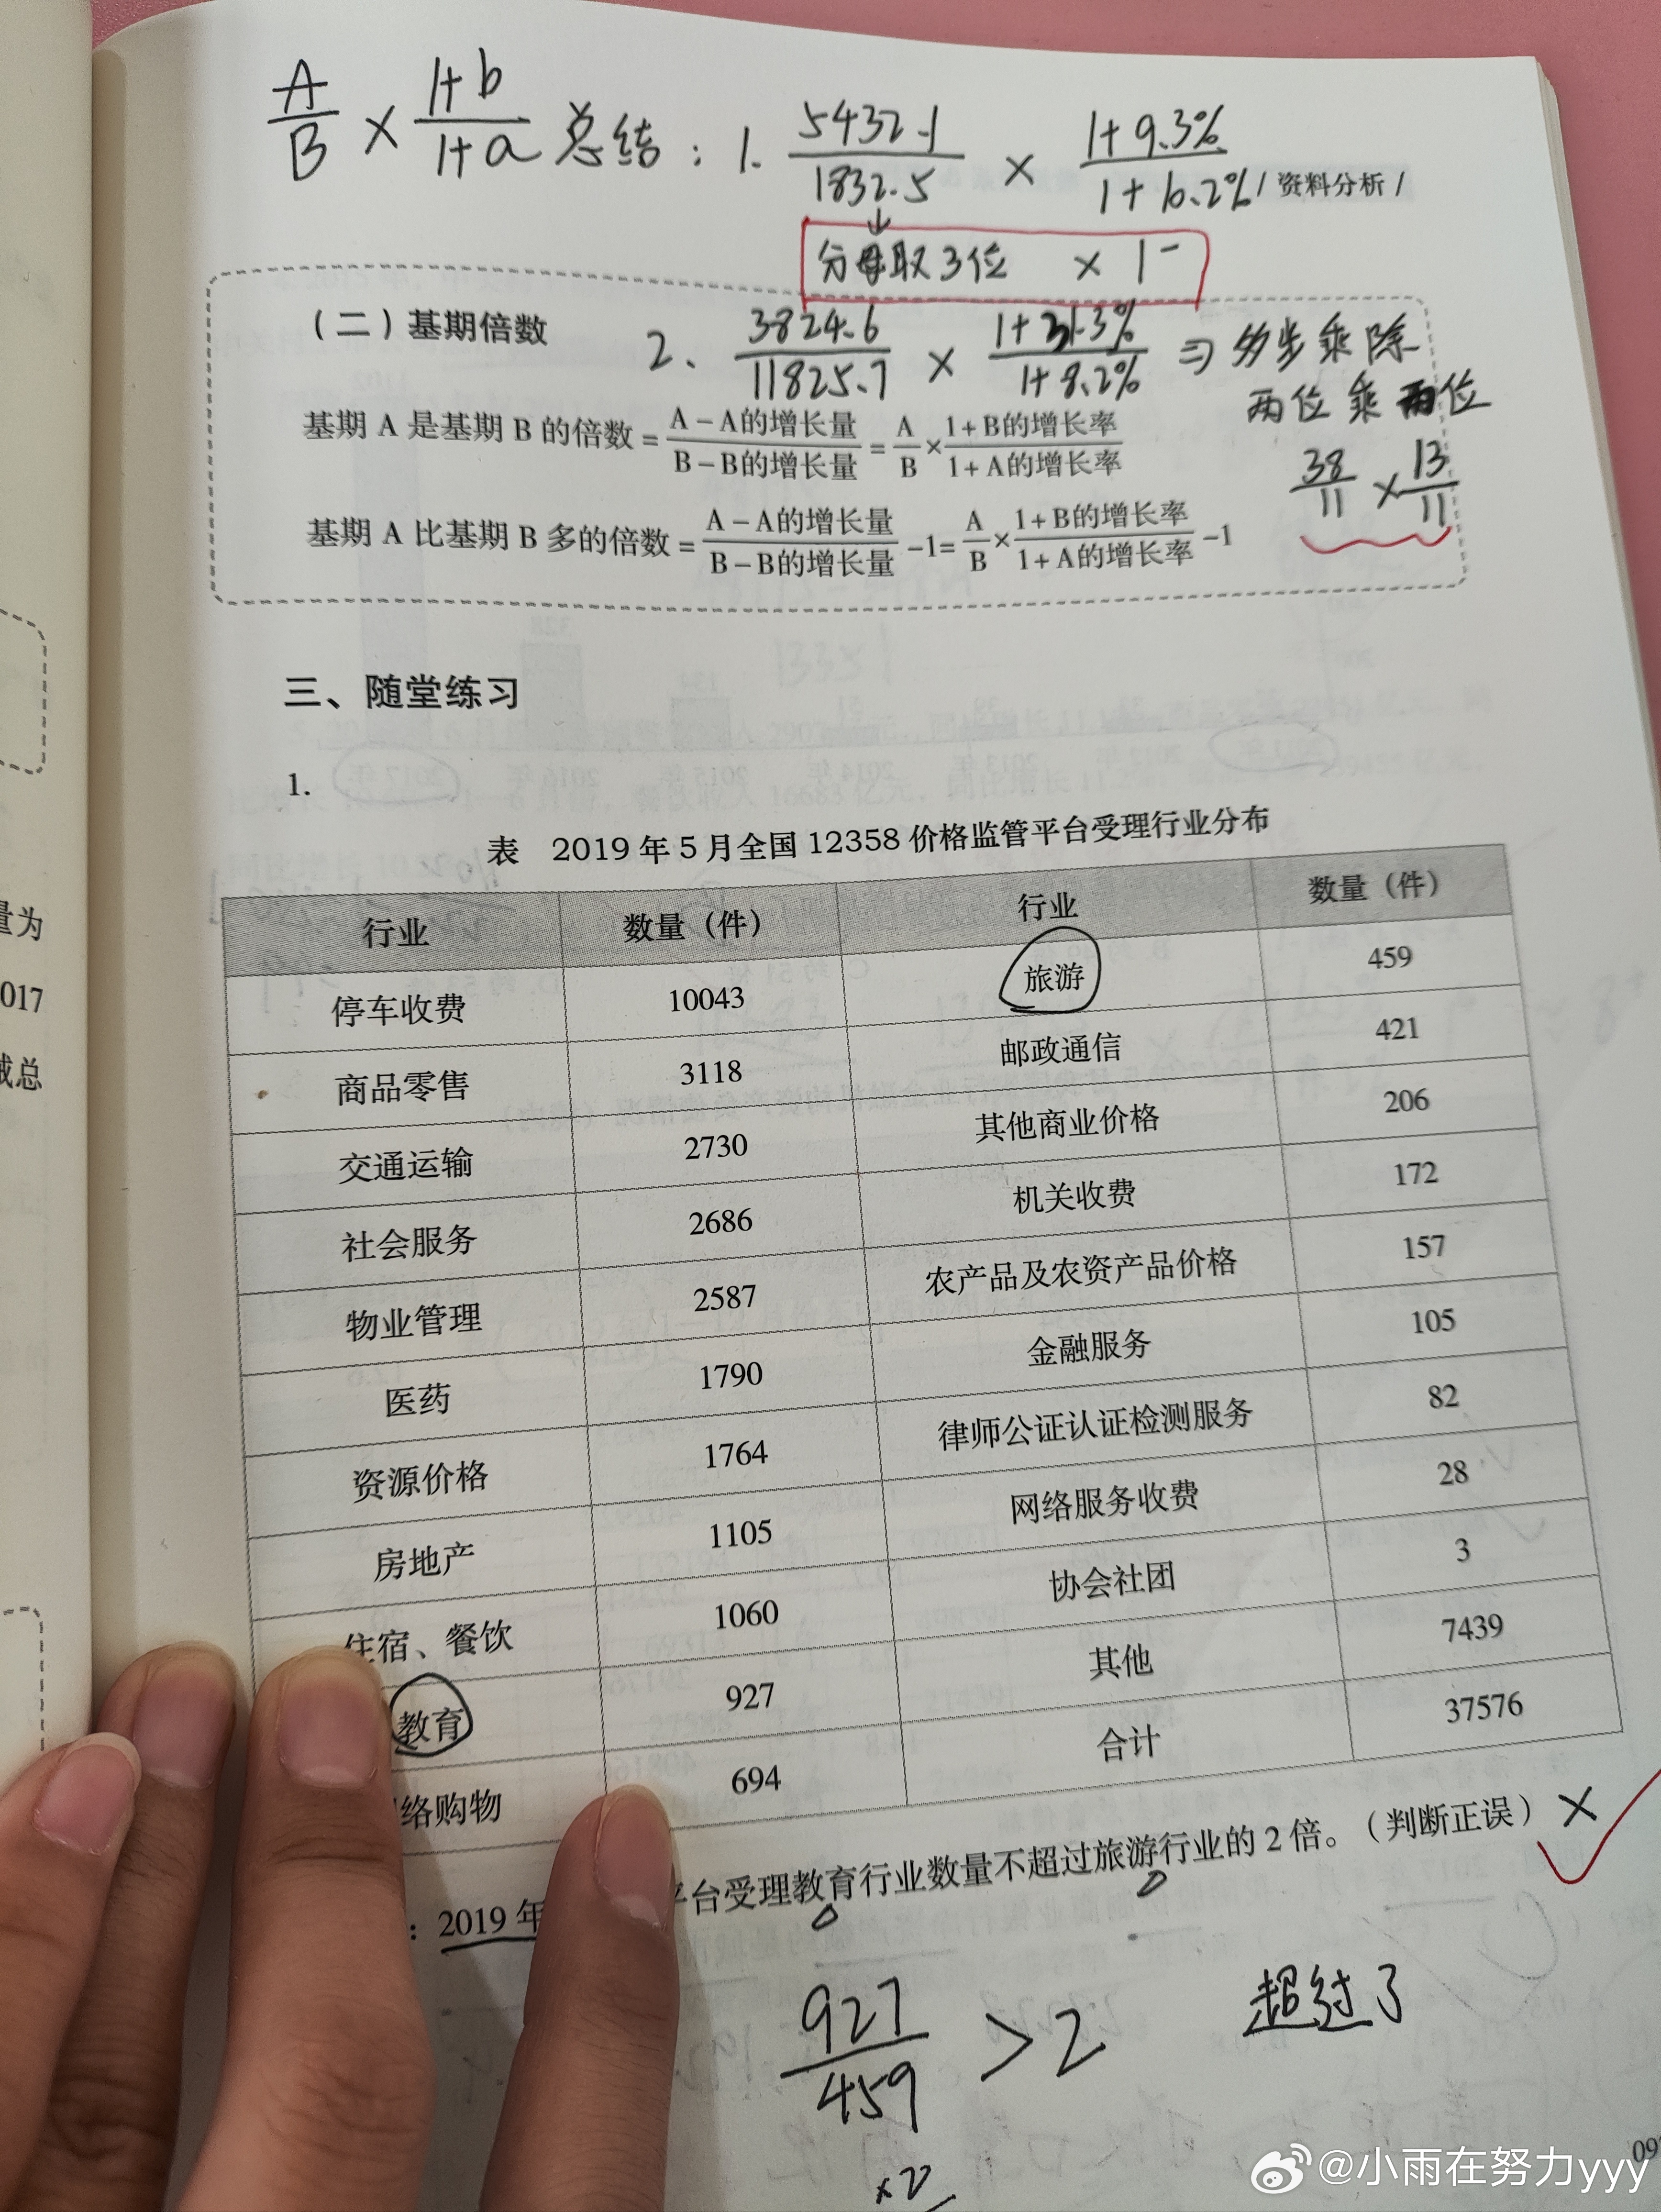 A/B × 1+b/1+a 总结：1. 5432.1/1832.5 × 1+9.3%/1+6.2%
/ 资料分析 /
↓
分母取3位 × 1⁻
（二）基期倍数
2、 3824.6/11825.7 × 1+31.3%/1+8.2% ⇒ 多步乘除
两位乘两位
38/11 × 13/11
基期 A 是基期 B 的倍数 = A－A的增长量/B－B的增长量 = A/B × 1+B的增长率/1+A的增长率
基期 A 比基期 B 多的倍数 = A－A的增长量/B－B的增长量 －1= A/B × 1+B的增长率/1+A的增长率 －1
三、随堂练习
1.
表 2019 年 5 月全国 12358 价格监管平台受理行业分布
行业 数量（件） 行业 数量（件）
停车收费 10043 旅游 459
商品零售 3118 邮政通信 421
交通运输 2730 其他商业价格 206
社会服务 2686 机关收费 172
物业管理 2587 农产品及农资产品价格 157
医药 1790 金融服务 105
资源价格 1764 律师公证认证检测服务 82
房地产 1105 网络服务收费 28
住宿、餐饮 1060 协会社团 3
教育 927 其他 7439
络购物 694 合计 37576
：2019 年 平台受理教育行业数量不超过旅游行业的 2 倍。（判断正误） ×
927/459 >2 超过了
×2
量为
017
总
@小雨在努力yyy